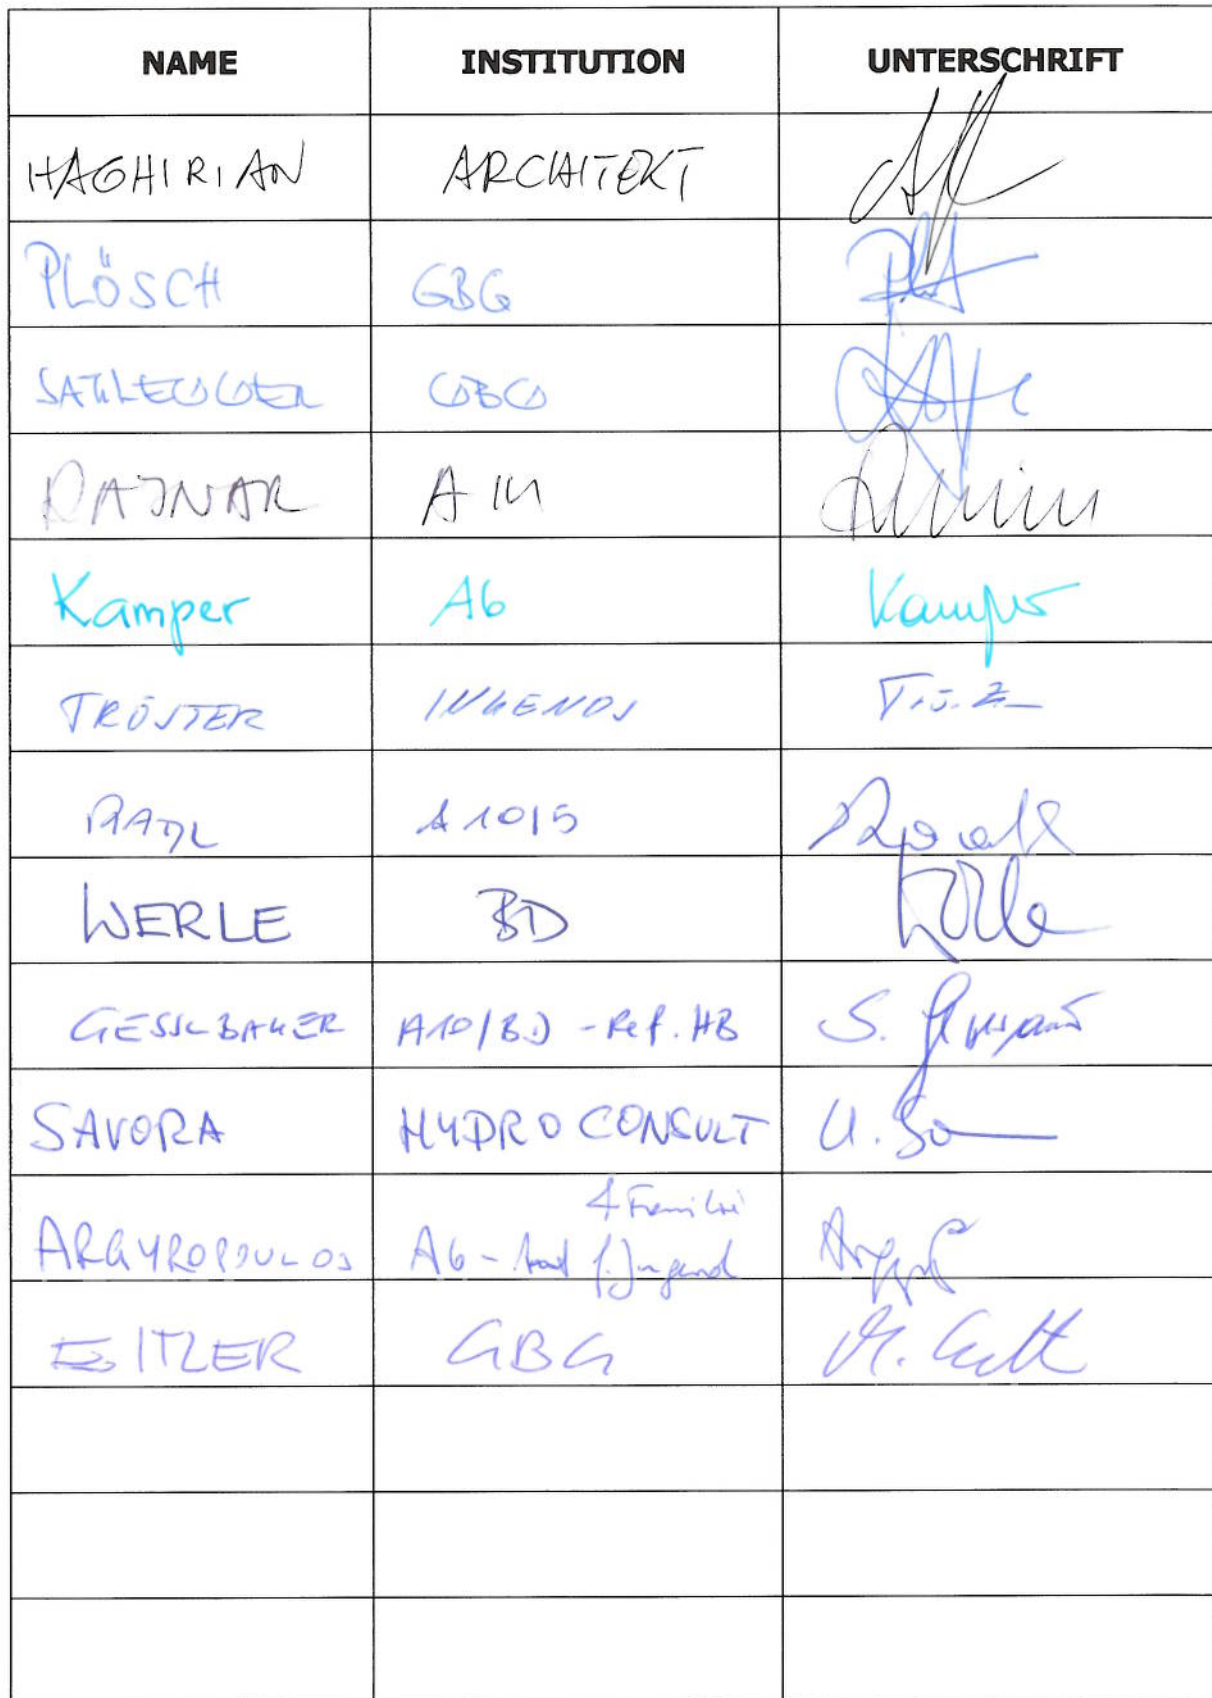 NAME INSTITUTION UNTERSCHRIFT
HAGHIRIAN ARCHITEKT
PLÖSCH GBG
SATTLEGGER GBG
RAJNAR A 14
Kamper A6 Kamper
TRÖSTER INGENOS
RADL A 10/5
WERLE BD Werle
GESSLBAUER A10/BD - Ref. HB S.
SAVORA HYDROCONSULT U.
& Familie
ARGYROPOULOS A6 - Amt f. Jugend
EITLER GBG M.